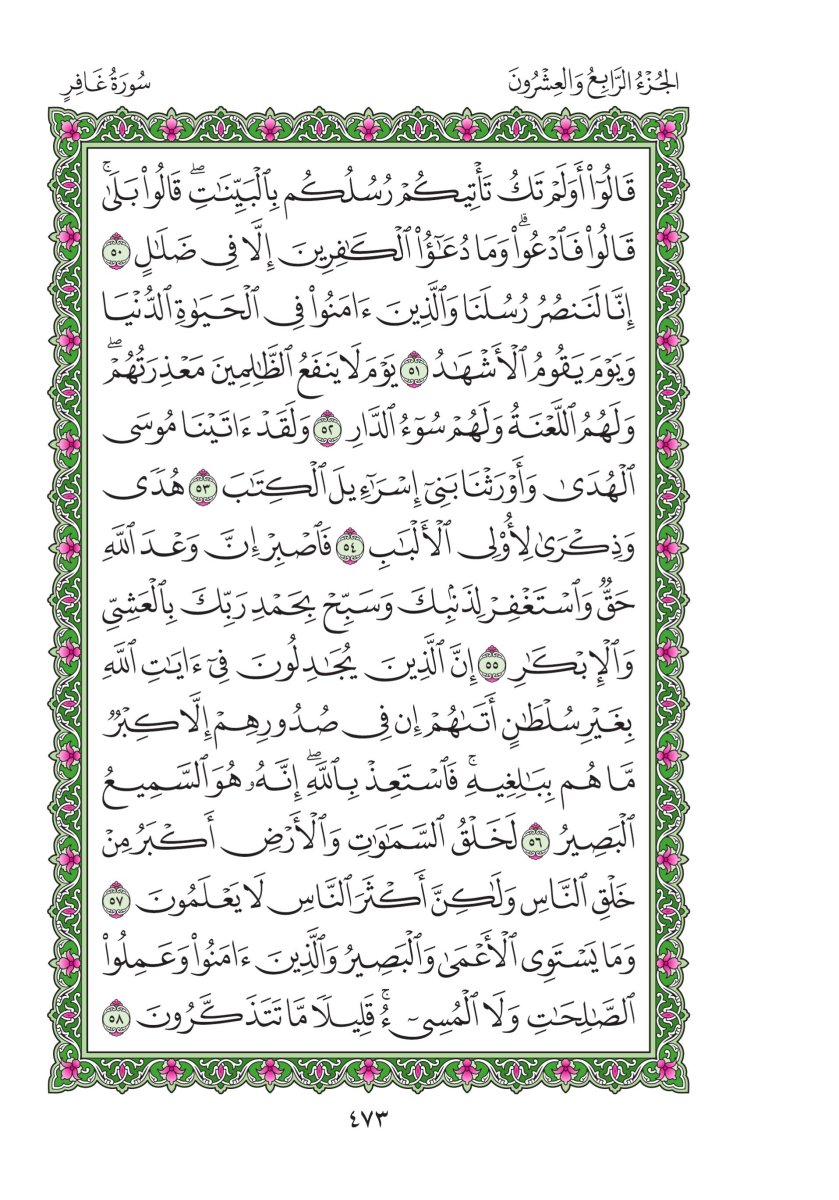 الجُزْءُ الرَّابِعُ وَالعِشْرُونَ
سُورَةُ غَافِرٍ
قَالُوٓاْ أَوَلَمْ تَكُ تَأْتِيكُمْ رُسُلُكُم بِٱلْبَيِّنَٰتِۖ قَالُواْ بَلَىٰۚ
قَالُواْ فَٱدْعُواْۗ وَمَا دُعَٰٓؤُاْ ٱلْكَٰفِرِينَ إِلَّا فِى ضَلَٰلٍ ٥٠
إِنَّا لَنَنصُرُ رُسُلَنَا وَٱلَّذِينَ ءَامَنُواْ فِى ٱلْحَيَوٰةِ ٱلدُّنْيَا
وَيَوْمَ يَقُومُ ٱلْأَشْهَٰدُ ٥١ يَوْمَ لَا يَنفَعُ ٱلظَّٰلِمِينَ مَعْذِرَتُهُمْۖ
وَلَهُمُ ٱللَّعْنَةُ وَلَهُمْ سُوٓءُ ٱلدَّارِ ٥٢ وَلَقَدْ ءَاتَيْنَا مُوسَى
ٱلْهُدَىٰ وَأَوْرَثْنَا بَنِىٓ إِسْرَٰٓءِيلَ ٱلْكِتَٰبَ ٥٣ هُدًى
وَذِكْرَىٰ لِأُوْلِى ٱلْأَلْبَٰبِ ٥٤ فَٱصْبِرْ إِنَّ وَعْدَ ٱللَّهِ
حَقٌّ وَٱسْتَغْفِرْ لِذَنۢبِكَ وَسَبِّحْ بِحَمْدِ رَبِّكَ بِٱلْعَشِىِّ
وَٱلْإِبْكَٰرِ ٥٥ إِنَّ ٱلَّذِينَ يُجَٰدِلُونَ فِىٓ ءَايَٰتِ ٱللَّهِ
بِغَيْرِ سُلْطَٰنٍ أَتَىٰهُمْ إِن فِى صُدُورِهِمْ إِلَّا كِبْرٌ
مَّا هُم بِبَٰلِغِيهِۚ فَٱسْتَعِذْ بِٱللَّهِۖ إِنَّهُۥ هُوَ ٱلسَّمِيعُ
ٱلْبَصِيرُ ٥٦ لَخَلْقُ ٱلسَّمَٰوَٰتِ وَٱلْأَرْضِ أَكْبَرُ مِنْ
خَلْقِ ٱلنَّاسِ وَلَٰكِنَّ أَكْثَرَ ٱلنَّاسِ لَا يَعْلَمُونَ ٥٧
وَمَا يَسْتَوِى ٱلْأَعْمَىٰ وَٱلْبَصِيرُ وَٱلَّذِينَ ءَامَنُواْ وَعَمِلُواْ
ٱلصَّٰلِحَٰتِ وَلَا ٱلْمُسِىٓءُۚ قَلِيلًا مَّا تَتَذَكَّرُونَ ٥٨
٤٧٣